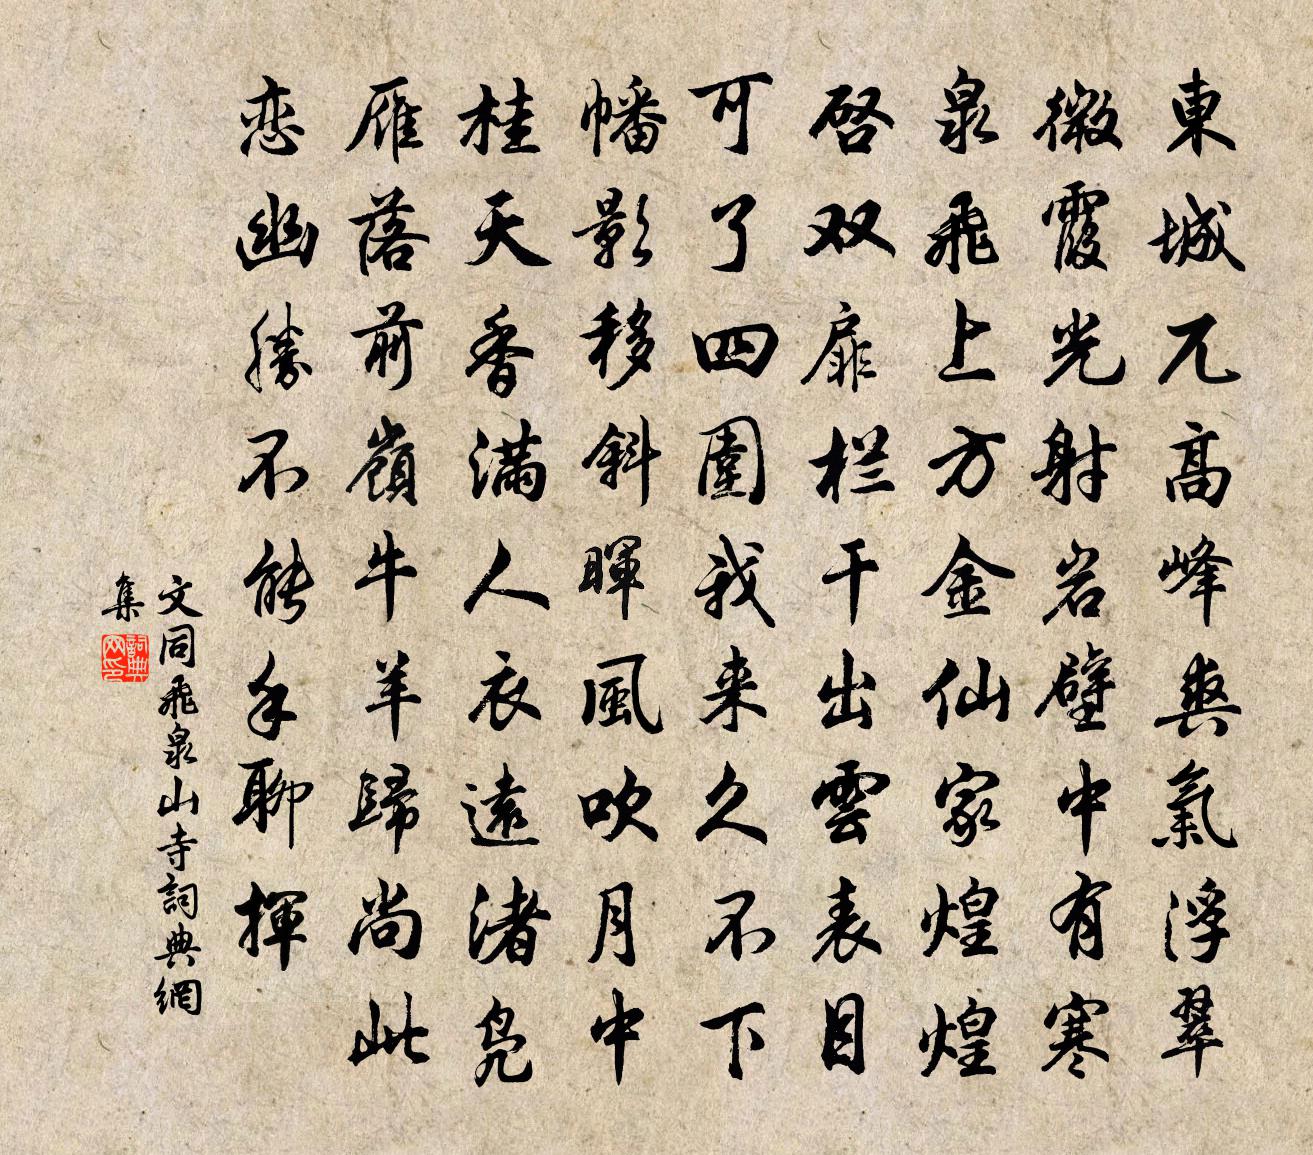 東城兀高峰爽氣浮翠
微霞光射岩壁中有寒
泉飛上方金仙家煌煌
啓双扉栏干出雲表目
可了四圍我来久不下
幡影移斜暉風吹月中
桂天香滿人衣遠渚凫
雁落前嶺牛羊歸尚此
恋幽勝不能手聊揮
文同飛泉山寺詞典網
集
詞典
网印